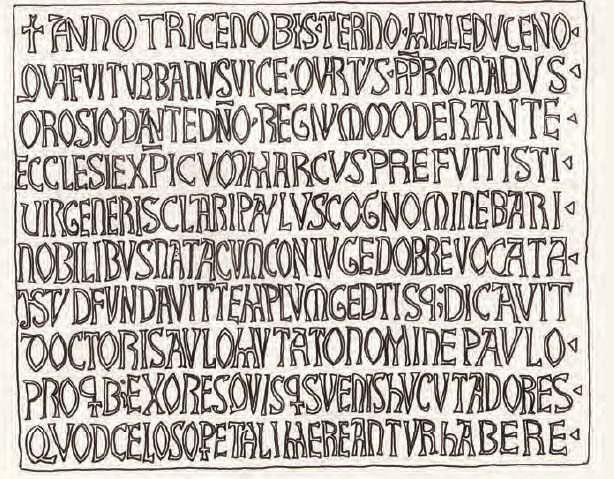 ✝ ANNO TRICENO BIS·TERNO·MILLEDVCENO
QVAFVITVRBANVSVICE:QVRTVS·PPROMADVS
OROSIO·DANTEDN̄O·REGNVMMODERANTE
ECCLESIEXP̄ICVMMARCVSPREFVITISTI
VIRGENERISCLARIPAVLVSCOGNOMINEBARI
NOBILIBVSNATACVMCONIVGEDOBREVOCATA
ISTVDFVNDAVITTEMPLVMGEDTISQ;DICAVIT
DOCTORISAVLOMVTATONOMINEPAVLO
PROQB;EXORESQVISQSVENISHVCVTADORES
QVODCELOSOPETALIMEREANTVRHABERE